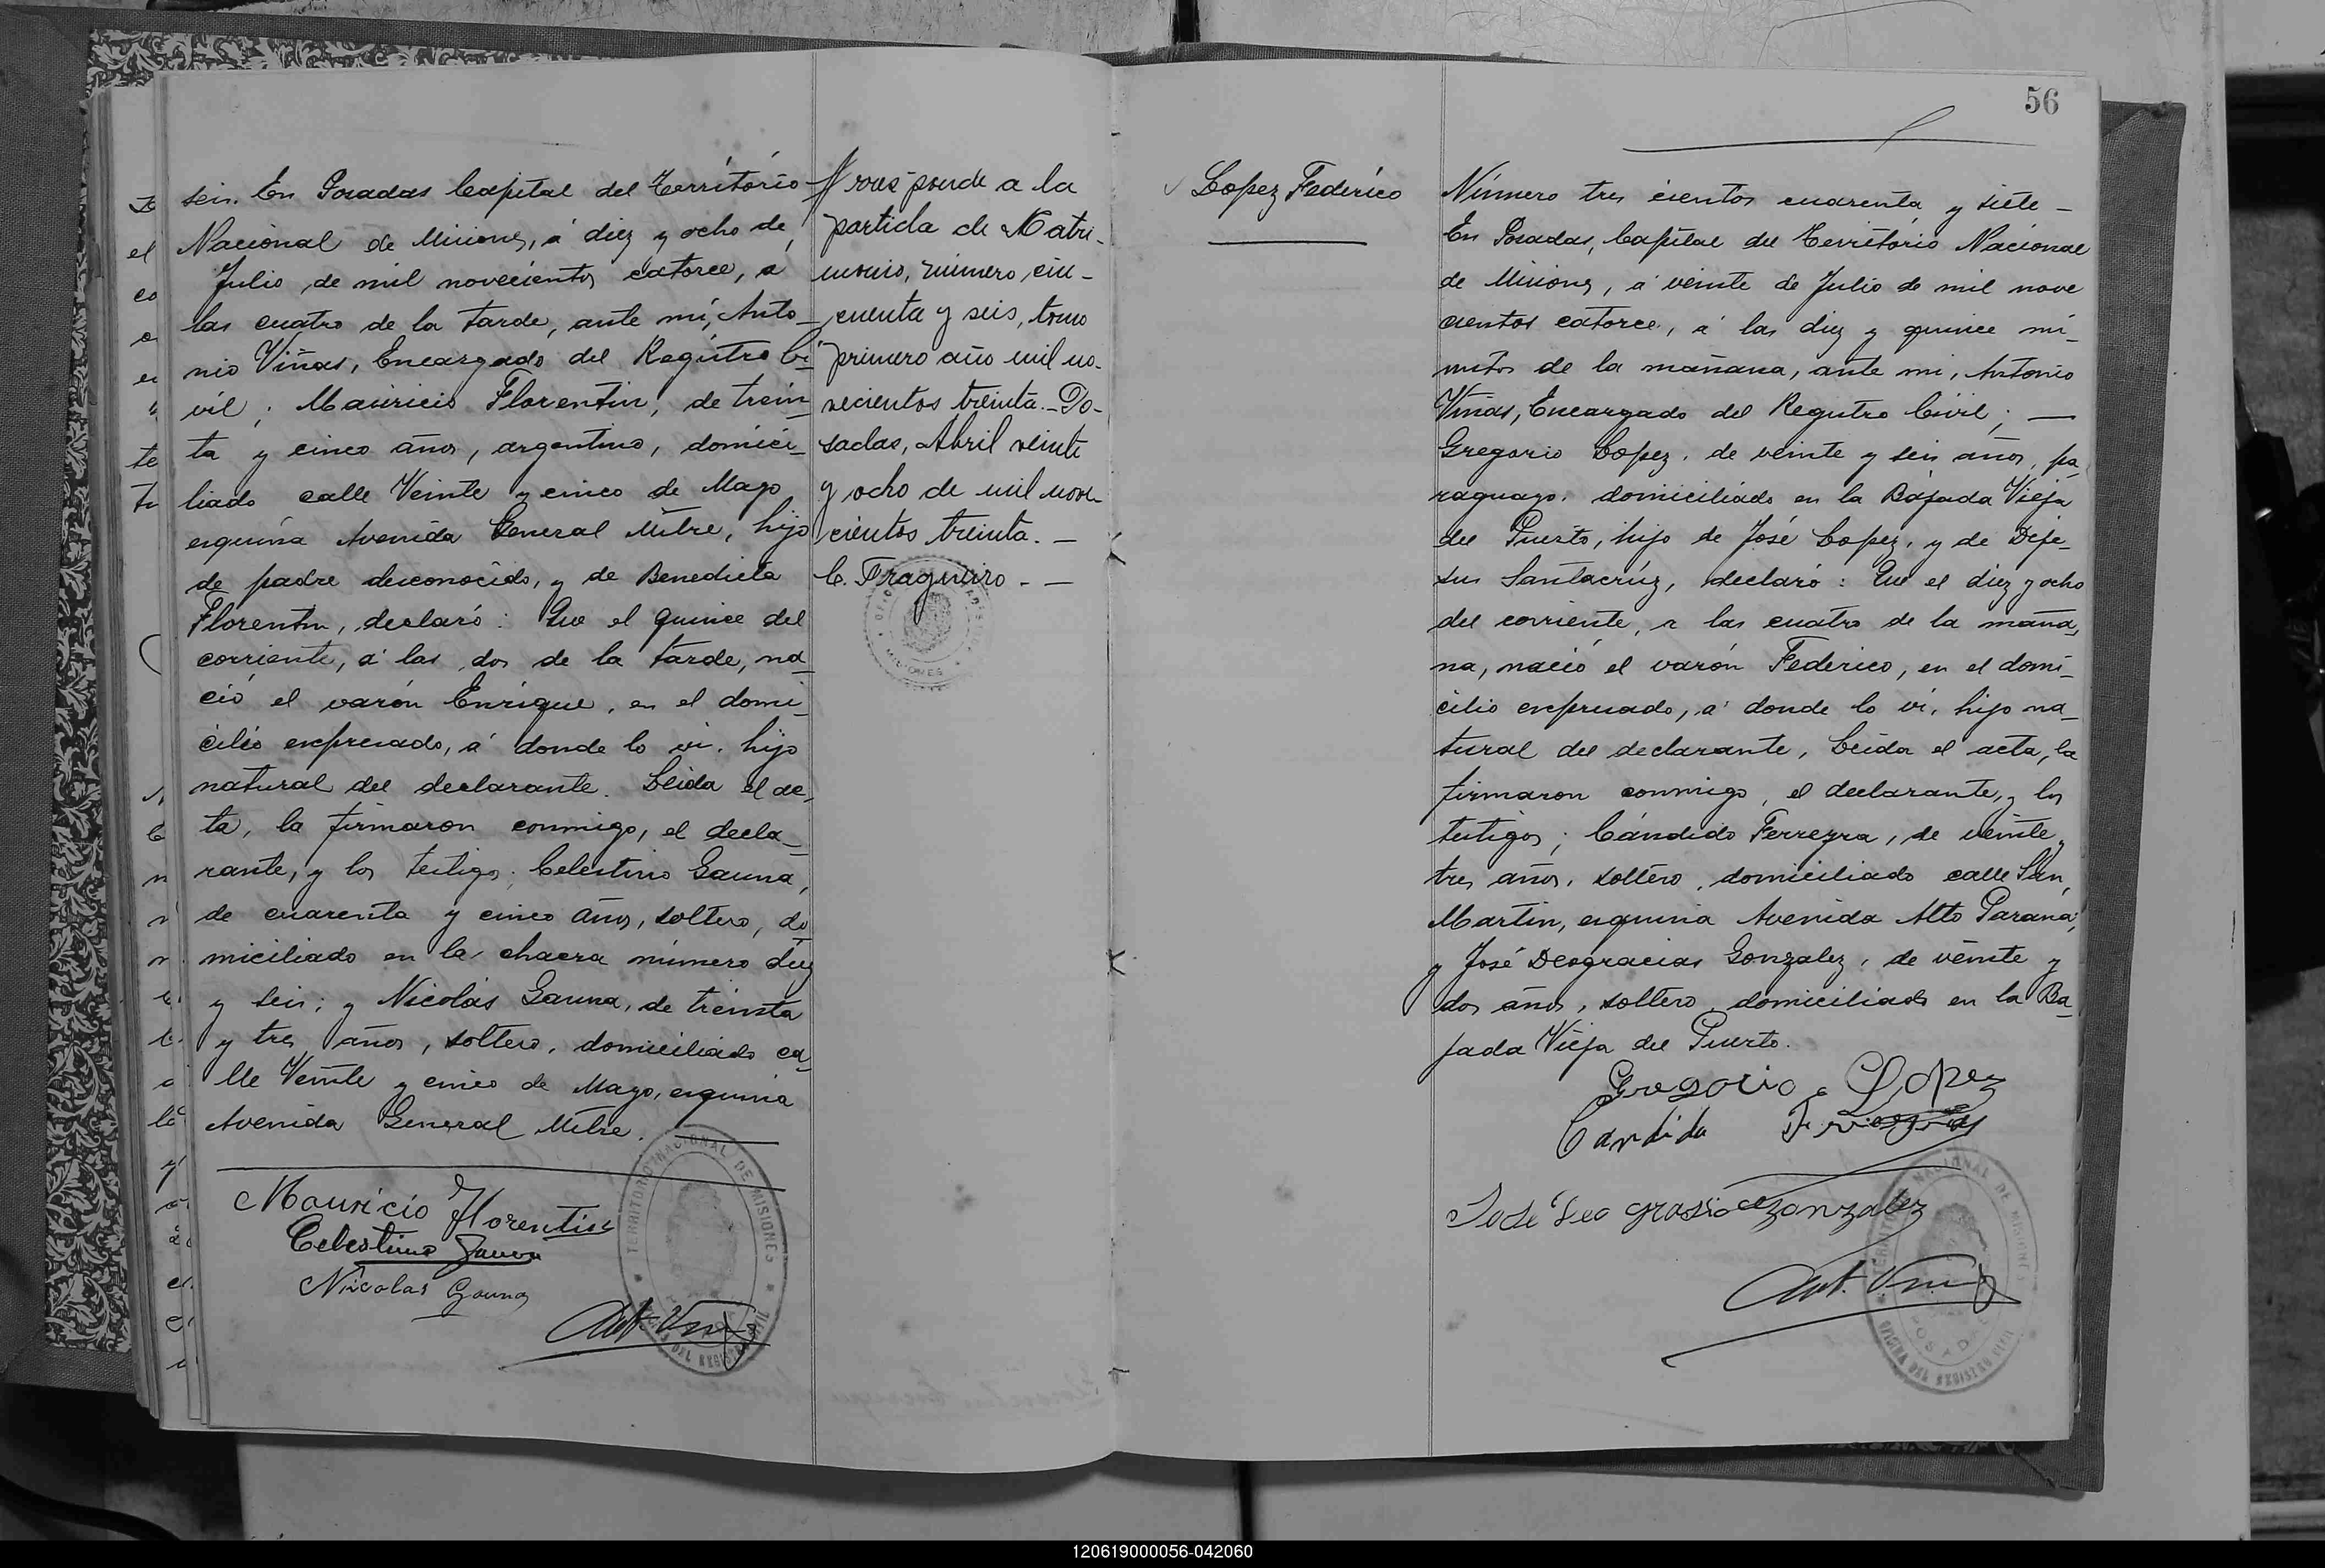 seis. En Posadas Capital del Território
Nacional de Misiones, á diez y ocho de
Julio de mil novecientos catorce, á
las cuatro de la tarde, ante mí, Anto-
nio Viñas, Encargado del Registro Ci-
vil; Mauricio Florentin, de trein-
ta y cinco años, argentino, domici-
liado calle Veinte y cinco de Mayo
esquina Avenida General Mitre, hijo
de padre desconocido, y de Benedicta
Florentin, declaró: Que el quince del
corriente, á las dos de la tarde, na-
ció el varón Enrique, en el domi-
cilio expresado, á donde lo ví, hijo
natural del declarante. Leida el ac-
ta, la firmaron conmigo, el decla-
rante, y los testigos; Celestino Gauna,
de cuarenta y cinco años, soltero, do-
miciliado en la chacra número diez
y seis; y Nicolás Gauna, de treinta
y tres años, soltero, domiciliado ca-
lle Veinte y cinco de Mayo, esquina
Avenida General Mitre.
Mauricio Florentin
Celestino Gauna
Nicolas Gauna
Ant. Viñas
TERRITORIO NACIONAL DE MISIONES
OFICINA DEL REGISTRO CIVIL
ponde a la
partida de Matri-
monio, número, cin-
cuenta y seis, tomo
primero año mil no-
vecientos treinta.-Po-
sadas, Abril veinte
y ocho de mil nove-
cientos treinta.-
C. Fragueiro.-
MISIONES
56
Lopez Federico
Número tres cientos cuarenta y siete-
En Posadas, Capital del Território Nacional
de Misiones, á veinte de Julio de mil nove
cientos catorce, á las diez y quince mi-
nutos de la mañana, ante mi, Antonio
Viñas, Encargado del Registro Civil;-
Gregorio Lopez, de veinte y seis años, pa-
raguayo, domiciliado en la Bajada Vieja
del Puerto, hijo de José Lopez, y de Deje-
sus Santacrúz, declaró: Que el diez y ocho
del corriente, a las cuatro de la maña-
na, nació el varón Federico, en el domi-
cilio expresado, á donde lo ví, hijo na-
tural del declarante. Leida el acta, la
firmaron conmigo, el declarante, y los
testigos; Cándido Ferreyra, de veinte y
tres años, soltero, domiciliado calle San
Martin, esquina Avenida Alto Paraná;
y José Deogracias Gonzalez, de veinte y
dos años, soltero, domiciliado en la Ba-
jada Vieja del Puerto.
Gregorio Lopez
Candido
José Deo grasia Gonzalez
Ant. Viñas
TERRITORIO NACIONAL DE MISIONES
POSADAS
OFICINA DEL REGISTRO CIVIL
120619000056-042060